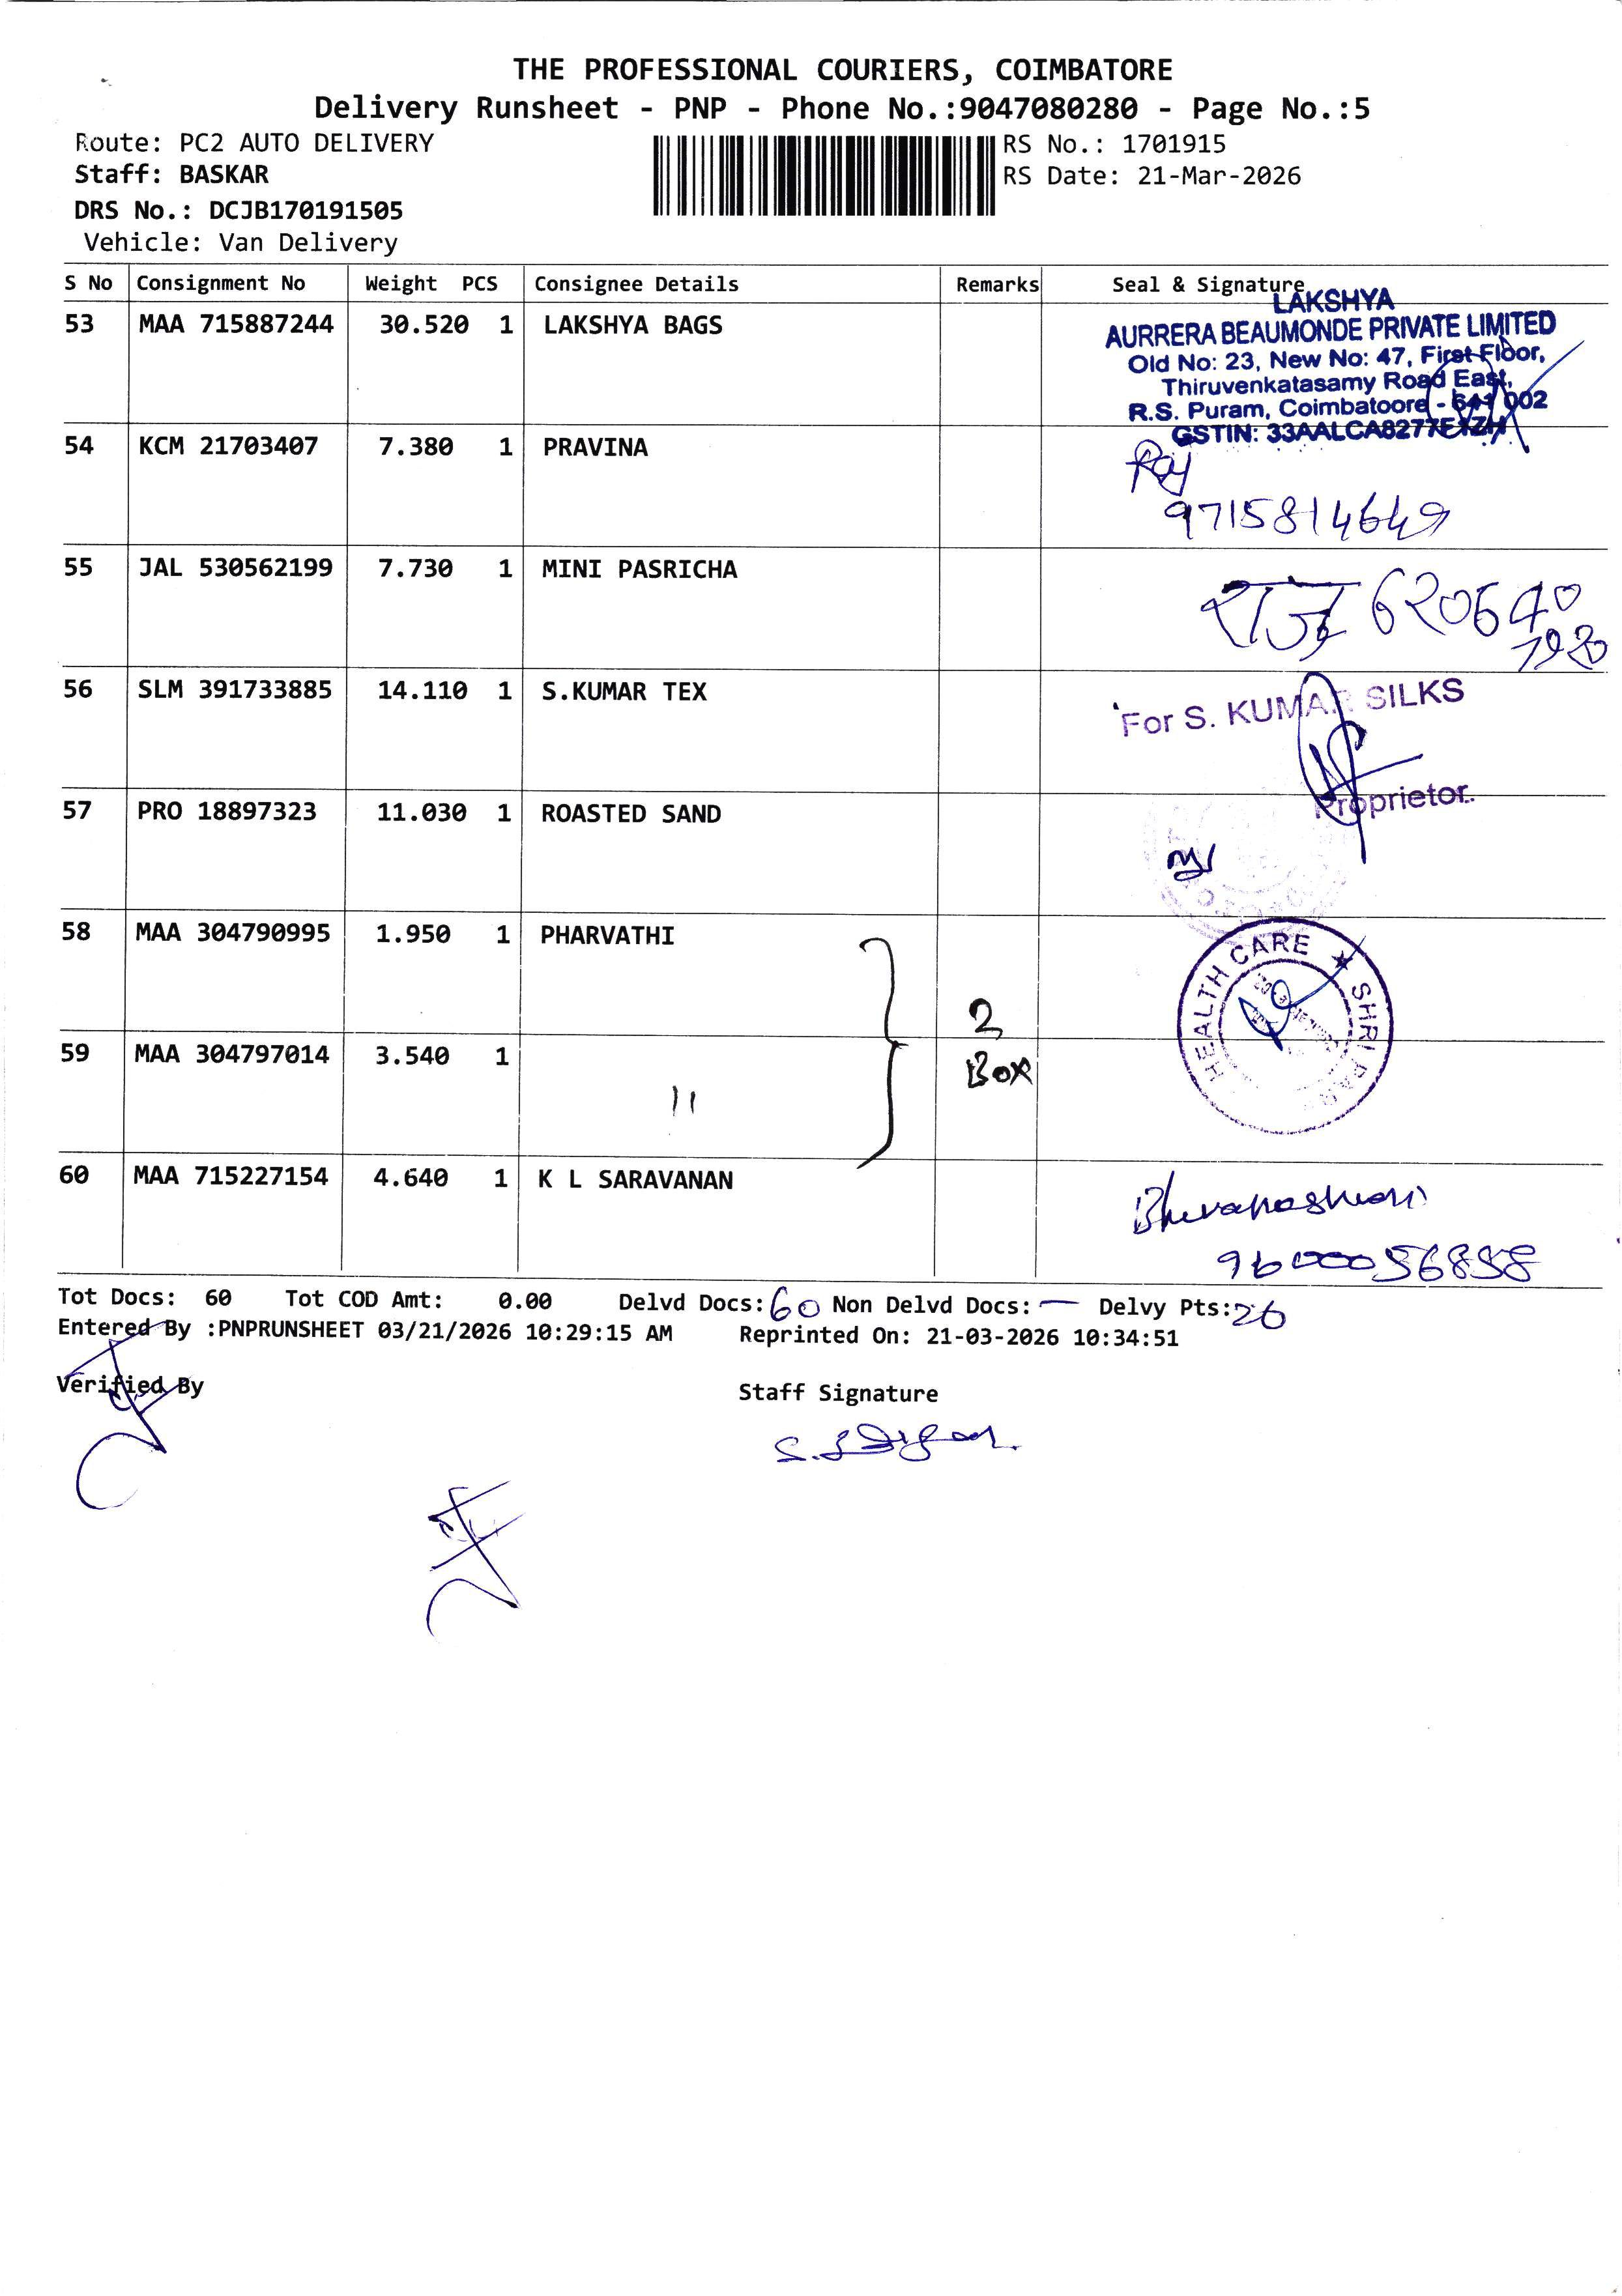 THE PROFESSIONAL COURIERS, COIMBATORE
Delivery Runsheet - PNP - Phone No.:9047080280 - Page No.:5
Route: PC2 AUTO DELIVERY
RS No.: 1701915
Staff: BASKAR
RS Date: 21-Mar-2026
DRS No.: DCJB170191505
Vehicle: Van Delivery
S No Consignment No Weight PCS Consignee Details Remarks Seal & Signature
53 MAA 715887244 30.520 1 LAKSHYA BAGS
LAKSHYA
AURRERA BEAUMONDE PRIVATE LIMITED
Old No: 23, New No: 47, First Floor,
Thiruvenkatasamy Road East,
R.S. Puram, Coimbatoore - 641 002
GSTIN:
54 KCM 21703407 7.380 1 PRAVINA
Raj
9715814649
55 JAL 530562199 7.730 1 MINI PASRICHA
राजु
56 SLM 391733885 14.110 1 S.KUMAR TEX
For S. KUMAR SILKS
Proprietor.
57 PRO 18897323 11.030 1 ROASTED SAND
58 MAA 304790995 1.950 1 PHARVATHI
2
Box
HEALTH CARE ★ SHRI
59 MAA 304797014 3.540 1
"
60 MAA 715227154 4.640 1 K L SARAVANAN
Bhuvaneshwari
Tot Docs: 60 Tot COD Amt: 0.00 Delvd Docs: 60 Non Delvd Docs: — Delvy Pts: 26
Entered By :PNPRUNSHEET 03/21/2026 10:29:15 AM Reprinted On: 21-03-2026 10:34:51
Verified By
Staff Signature